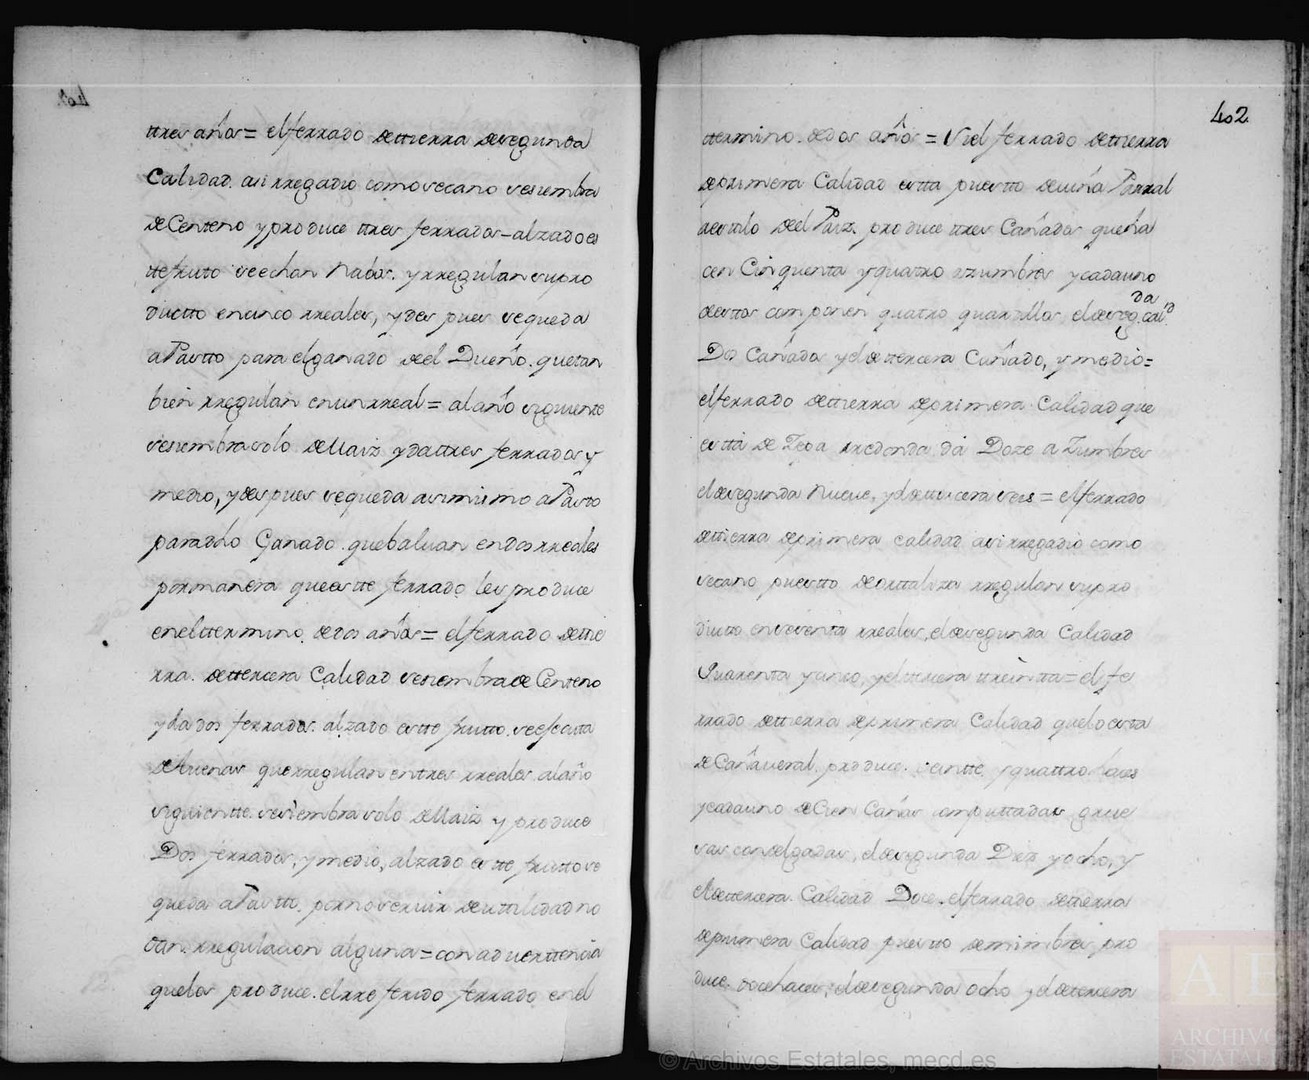 ttres años = el ferrado de ttierra de segunda
Calidad. asi rregadio como secano se siembra
de Centeno y produce ttres ferrados = alzado es
tte fruto se echan Nabos. y rregulan su pro
ductto en cinco rreales, y des pues se queda
a Pastto para el ganado de el Dueño. que tan
bien rregulan en un rreal = al año siguiente
se siembra solo de Maiz y da ttres ferrados y
medio, y des pues se queda asimismo a Pasto
para dho Ganado. que baluan en dos rreales
por manera que estte ferrado les produce
en el ttermino. de dos años = el ferrado de ttie
rra. de ttercera Calidad se siembra de Centeno
y da dos ferrados. alzado estte frutto. se efecttua
de Auenas que rregulan en tres rreales al año
siguientte. se siembra solo de Maiz y produce
Dos ferrados, y medio, alzado estte frutto se
queda a Pastto. por no seruir de uttilidad no
ttan. rregulacion alguna = con aduerttencia
que los produce. el rre ferido ferrado en el
402
ttermino. de dos años = Y el ferrado de ttierra
de primera Calidad estta puestto de viña Parral
a esttilo de el Paiz. produce ttres Cañados que ha
cen Cinquenta y quatro azumbres y cada uno
de esttos componen quatro quarttillos, el de seg.da cal.d
Dos Cañados y el de ttercera Cañado, y medio =
el ferrado de ttierra de primera Calidad que
esttá de Zepa rredonda dá Doze azumbres
el de segunda nueue, y el de ttercera seis = el ferrado
de ttierra de primera calidad asi rregadio como
secano puestto de orttaliza rregulan su pro
ductto en sesenta rreales, el de segunda Calidad
Quarenta y cinco, y el ttercera ttreintta = el fe
rrado de ttierra de primera Calidad que lo esta
de Cañaueral, produce. veintte y quattro haces
y cada uno de Cien Cañas componttadas grue
sas con delgadas, el de segunda Diez y ocho, y
el de ttercera. Calidad Doce. el ferrado de ttierra
de primera Calidad puestto de mimbres pro
duce. doce haces, el de segunda ocho y el de ttercera
© Archivos Estatales, mecd.es
AE
ARCHIVOS
ESTATALES